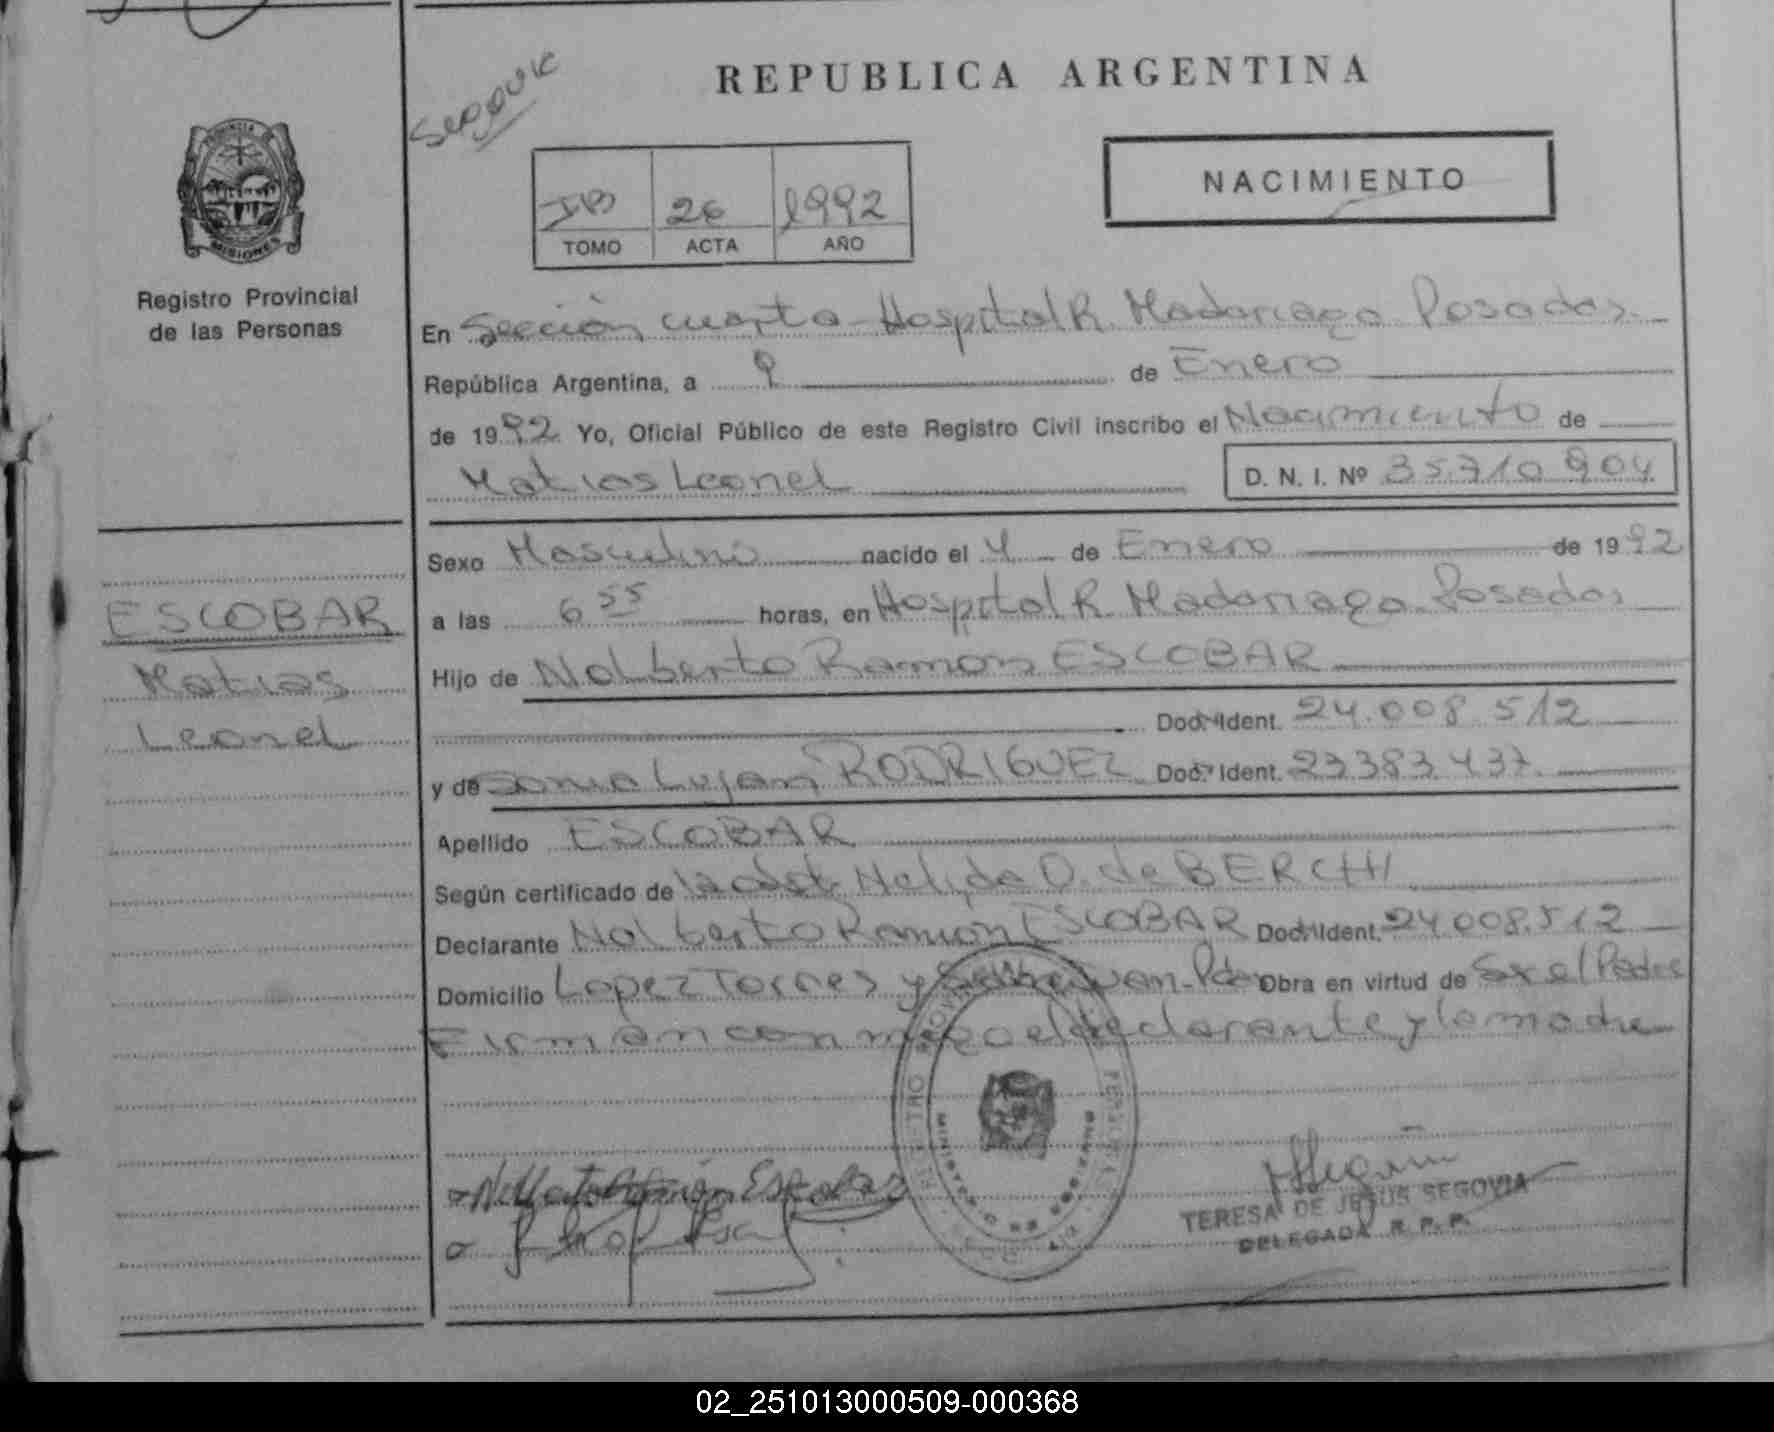 REPUBLICA ARGENTINA
PROVINCIA DE
MISIONES
Registro Provincial
de las Personas
26 1992
TOMO ACTA AÑO
NACIMIENTO
En Sección cuarta Hospital R. Madariaga Posadas
República Argentina, a 9 de Enero
de 1992 Yo, Oficial Público de este Registro Civil inscribo el Nacimiento de
Matias Leonel D. N. I. Nº 35.710.904
Sexo Masculino nacido el 4 de Enero de 1992
a las 6 55 horas, en Hospital R. Madariaga Posadas
Hijo de Nolberto Ramon ESCOBAR
Doc. Ident. 24.008.512
y de Sonia Lujan RODRIGUEZ Doc. Ident. 23383437
Apellido ESCOBAR
Según certificado de la obst. Nelida O. de BERCHI
Declarante Nolberto Ramon ESCOBAR Doc. Ident. 24.008.512
Domicilio Lopez Torres y Obra en virtud de Ser el Padre
Firman conmigo el declarante y la madre
ESCOBAR
Matias
Leonel
TERESA DE JESUS SEGOVIA
DELEGADA R. P. P.
02_251013000509-000368